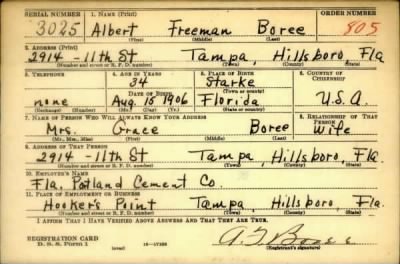 SERIAL NUMBER 1. NAME (Print) ORDER NUMBER
3025 Albert Freeman Boree 805
(First) (Middle) (Last)
2. ADDRESS (Print)
2914-11th St Tampa, Hillsboro, Fla
(Number and street or R. F. D. number) (Town) (County) (State)
3. TELEPHONE 4. AGE IN YEARS 5. PLACE OF BIRTH 6. COUNTRY OF CITIZENSHIP
34 Starke
DATE OF BIRTH (Town or county)
none Aug. 15 1906 Florida U.S.A.
(Exchange) (Number) (Mo.) (Day) (Yr.) (State or country)
7. NAME OF PERSON WHO WILL ALWAYS KNOW YOUR ADDRESS 8. RELATIONSHIP OF THAT PERSON
Mrs. Grace Boree Wife
(Mr., Mrs., Miss) (First) (Middle) (Last)
9. ADDRESS OF THAT PERSON
2914-11th St Tampa, Hillsboro, Fla.
(Number and street or R. F. D. number) (Town) (County) (State)
10. EMPLOYER'S NAME
Fla. Potland Cement Co.
11. PLACE OF EMPLOYMENT OR BUSINESS
Hooker's Point Tampa, Hillsboro, Fla
(Number and street or R. F. D. number) (Town) (County) (State)
I AFFIRM THAT I HAVE VERIFIED ABOVE ANSWERS AND THAT THEY ARE TRUE.
REGISTRATION CARD
D. S. S. Form 1 (over) 16-17105 (Registrant's signature)